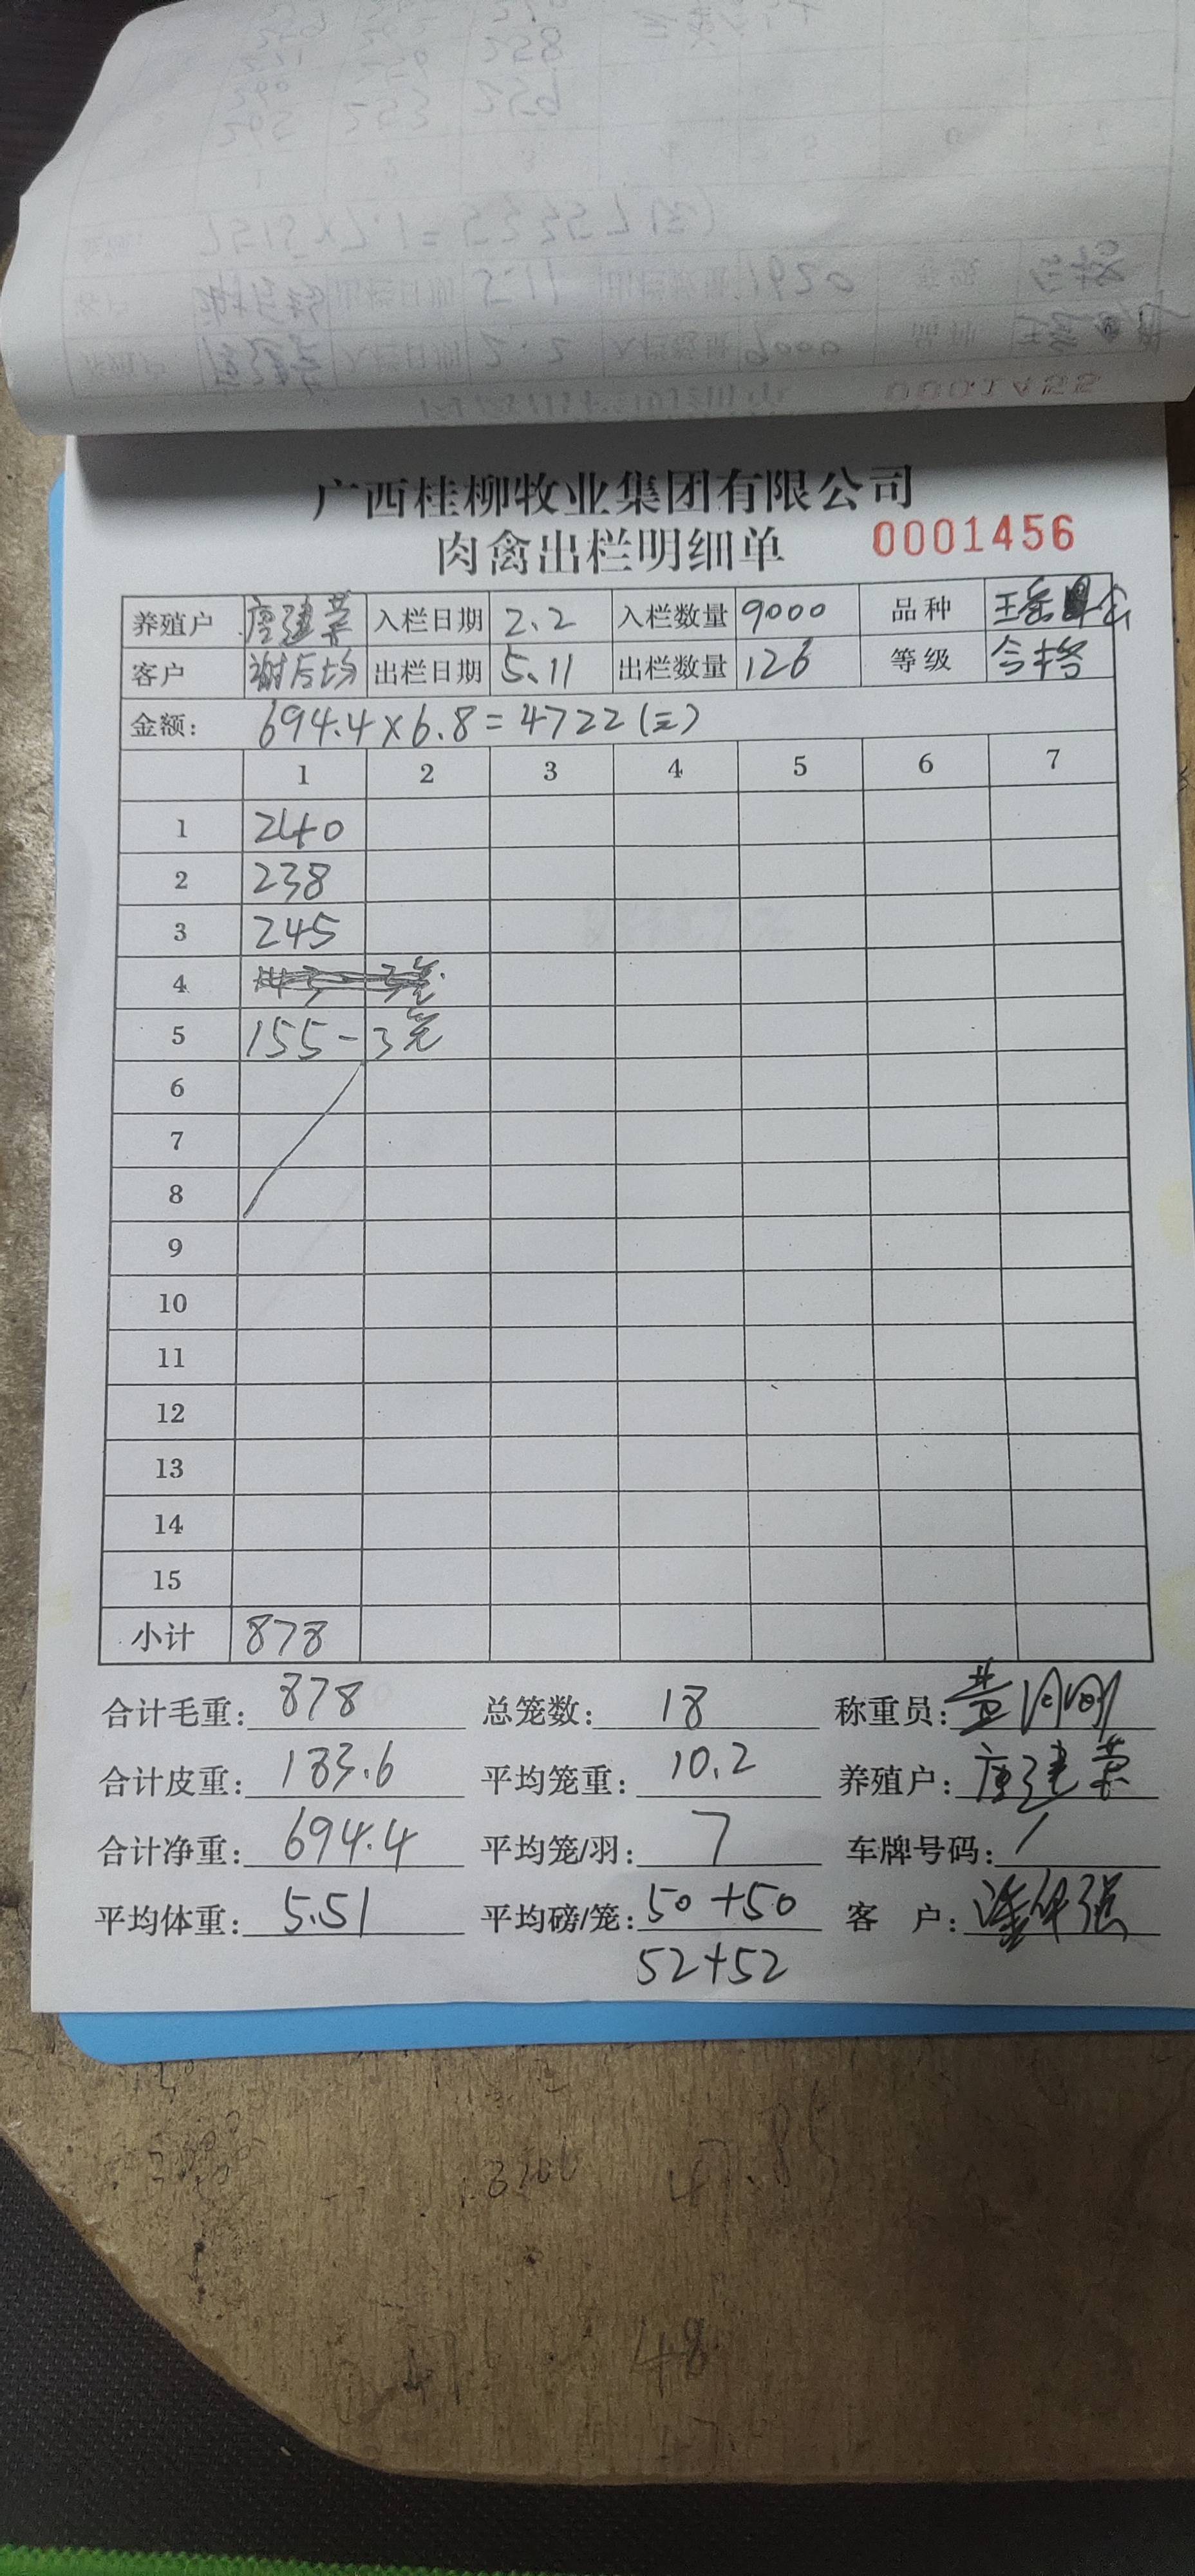 广西桂柳牧业集团有限公司
肉禽出栏明细单 0001456
养殖户 唐建荣 入栏日期 2.2 入栏数量 9000 品种
客户 出栏日期 5.11 出栏数量 126 等级 合格
金额: 694.4×6.8=4722(元)
1 2 3 4 5 6 7
1 240
2 238
3 245
4
5 155-3笼
6
7
8
9
10
11
12
13
14
15
小计 878
合计毛重: 878 总笼数: 18 称重员:
合计皮重: 183.6 平均笼重: 10.2 养殖户: 唐建荣
合计净重: 694.4 平均笼/羽: 7 车牌号码: /
平均体重: 5.51 平均磅/笼: 50+50 客 户:
52+52